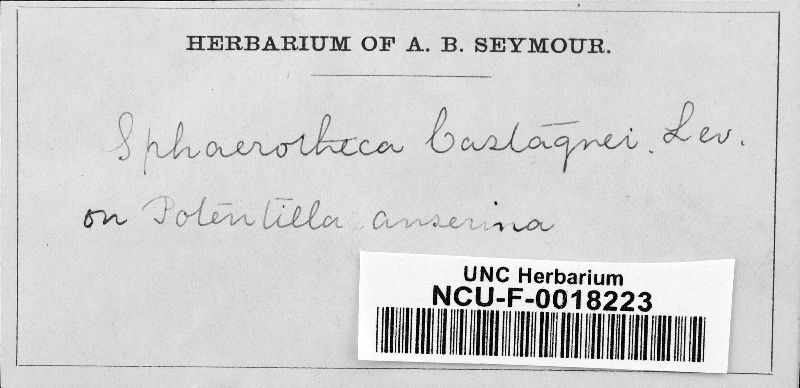 HERBARIUM OF A. B. SEYMOUR.
Sphaerotheca Castagnei. Lev.
on Potentilla anserina
UNC Herbarium
NCU-F-0018223